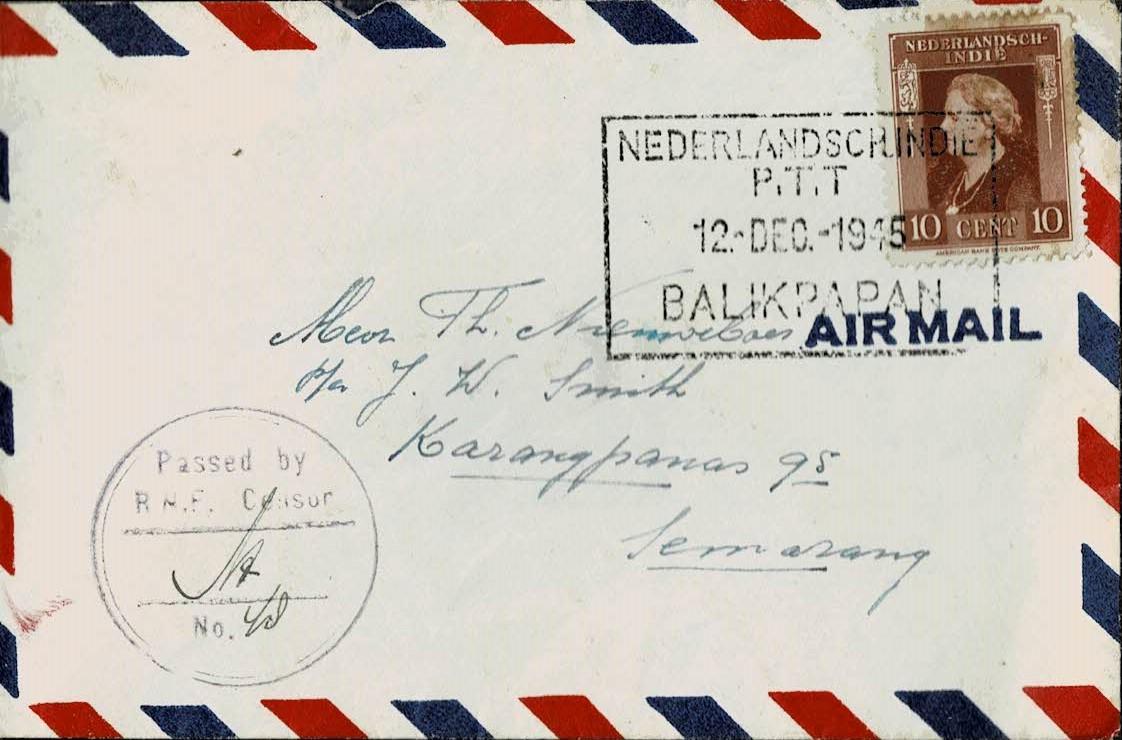 NEDERLANDSCH-
INDIË
10 CENT 10
AMERICAN BANK NOTE COMPANY.
NEDERLANDSCH.INDIE
P.T.T
12.-DEC.-1945
BALIKPAPAN
AIR MAIL
Th.
p/a J. W. Smith
Karangpanas 98
Semarang
Passed by
R.N.F. Censor
No. 48